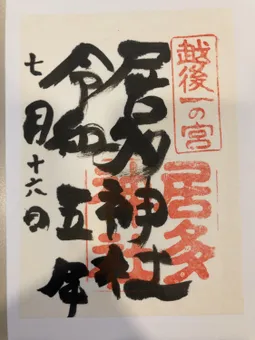 越後一の宮
居多神社
居多
神社
令和五年
七月十六日